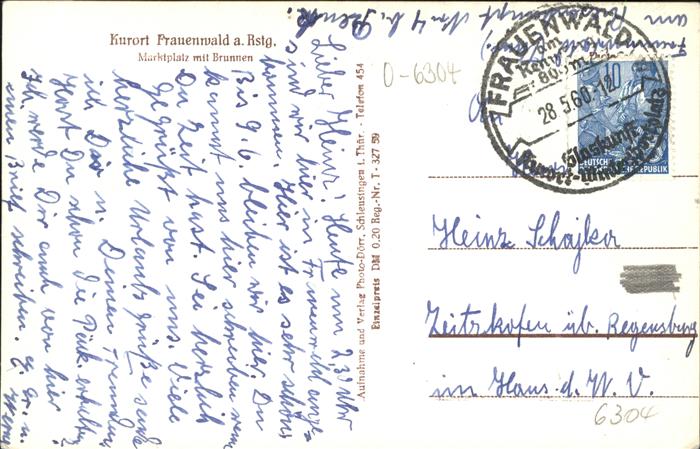 Kurort Frauenwald a. Rstg.
Marktplatz mit Brunnen
Lieber Heinz! Heute um 7,30 Uhr
sind wir hier in Frauenwald ange-
kommen. Hier ist es sehr schön.
Bis 9.6. bleiben wir hier. Du
kannst uns hier schreiben wenn
Du Zeit hast. Sei herzlich
gegrüßt von uns. Viele
herzliche Urlaubsgrüße sende
ich Dir u. Deinen Freunden
Hast Du schon die Päck. erhalten
Ich werde Dir auch von hier
einen Brief schreiben.
Aufnahme und Verlag Photo-Dörr, Schleusingen i. Thür. - Telefon 454
Einzelpreis DM 0,20 Reg.-Nr. T- 327 59
0-6304
FRAUENWALD
am
28.5.60.-12
Glaskunst
Kurort-Wintersportplatz
10
DEUTSCHE
REPUBLIK
Heinz Schajkor
Zeitzkofen üb. Regensburg
im Haus d. W. V.
6304